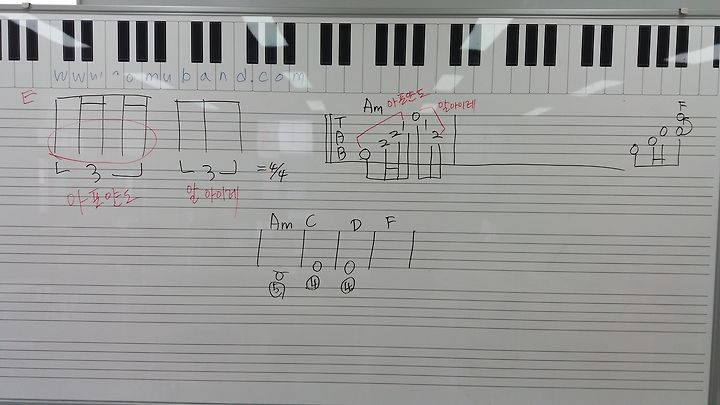 E
3
3
=4/4
아포얀도
알아이레
Am 아포얀도 알아이레
T
A
B
0 2 2 2 0 1 2
F
0 0 0 0
Am C D F
⑤ ④ ④